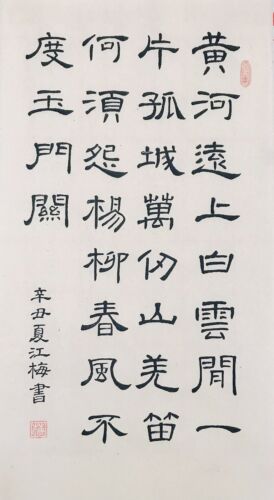 黃河遠上白雲閒一
片孤城萬仞山羌笛
何須怨楊柳春風不
度玉門關
辛丑夏江梅書